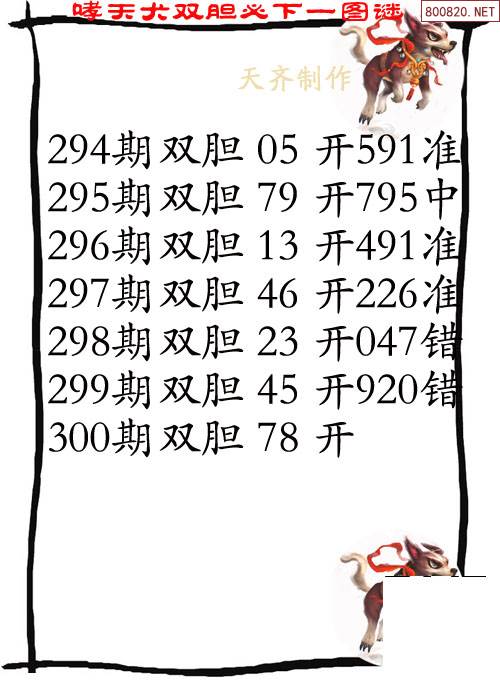 哮天犬双胆必下一图谜
800820.NET
天齐制作
294期双胆 05 开591准
295期双胆 79 开795中
296期双胆 13 开491准
297期双胆 46 开226准
298期双胆 23 开047错
299期双胆 45 开920错
300期双胆 78 开